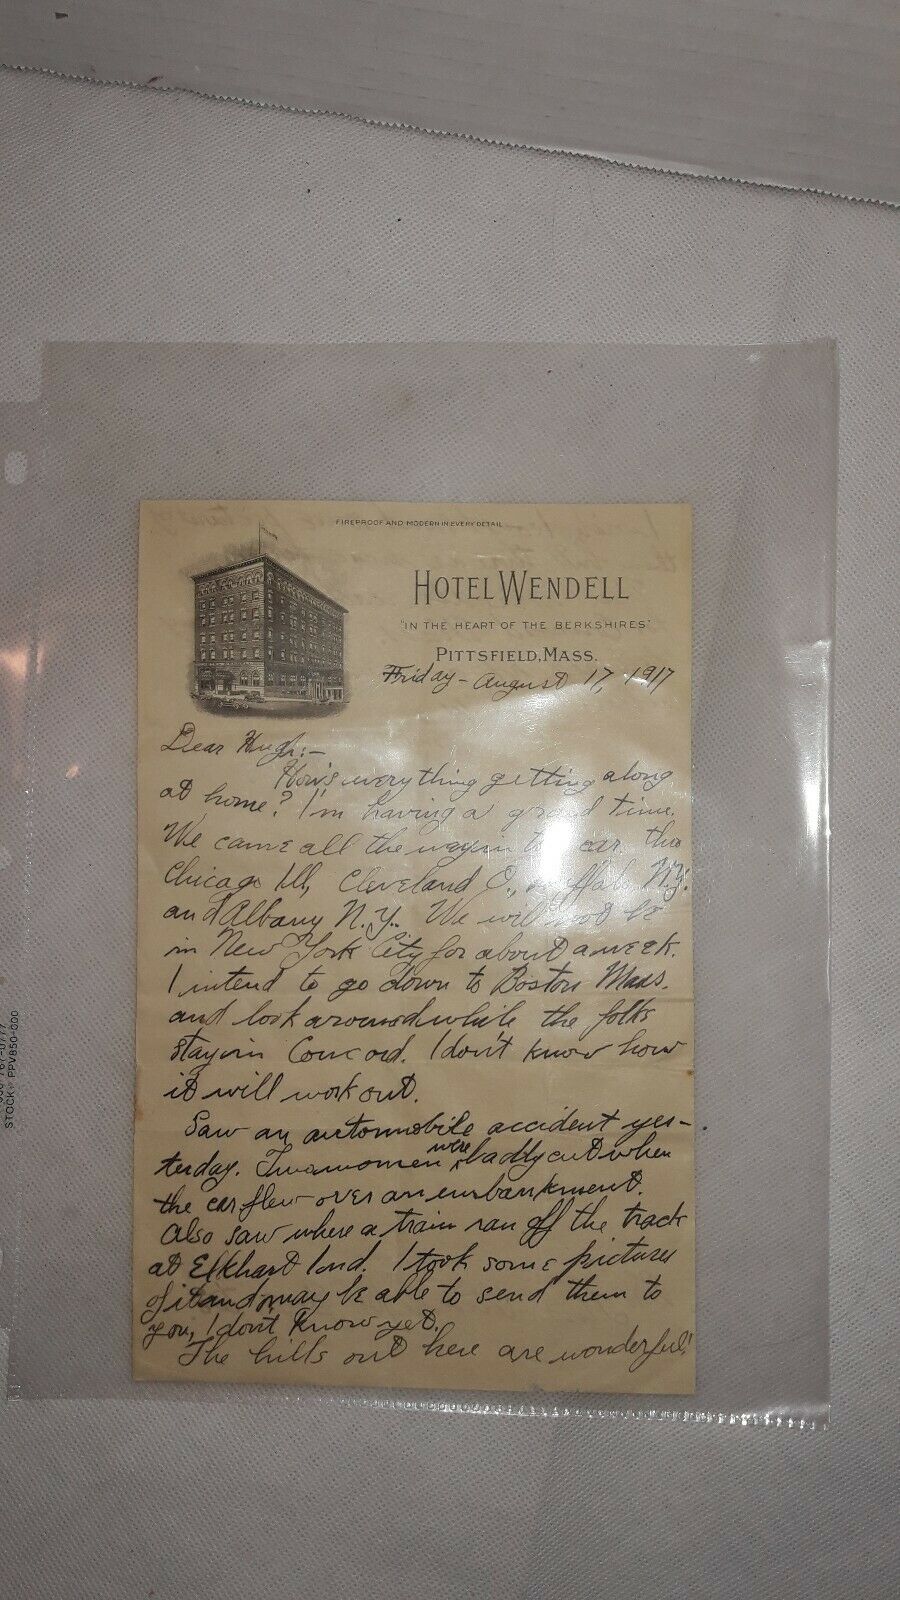 FIREPROOF AND MODERN IN EVERY DETAIL
HOTEL WENDELL
"IN THE HEART OF THE BERKSHIRES"
PITTSFIELD, MASS.
Friday - August 17, 1917
Dear Hugh:-
How's everything getting along
at home? I'm having a grand time.
We came all the way in car, thro
Chicago Ill, Cleveland O., Buffalo N.Y.
and Albany N.Y. We will not be
in New York City for about a week.
I intend to go down to Boston Mass.
and look around while the folks
stay in Concord. I don't know how
it will work out.
Saw an automobile accident yes-
terday. Two women were badly cut when
the car flew over an embankment.
Also saw where a train ran off the track
at Elkhart Ind. I took some pictures
of it and may be able to send them to
you, I don't know yet.
The hills out here are wonderful!
STOCK# PPV850-000